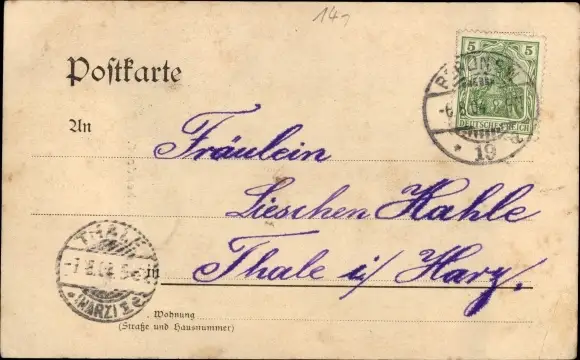 14.-
Postkarte
5 5
DEUTSCHES REICH
19
An
Fräulein
Lieschen Kahle
Thale i/ Harz.
THALE
(HARZ)
in
Wohnung
(Straße und Hausnummer)